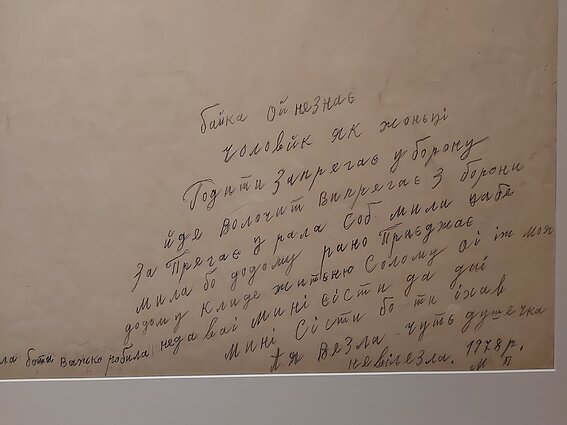 байка Ой незнає
чоловік як жоньці
Годити Запрегає у борону
йде волочит випрегає З борони
За Прегає у рала Соб мила
мила бо додому рано Приєджає
додому кладе житьню Солому ої іж моя
недаваї мині єісти да даї
ла бота важко робила
мині Сісти бо ти їхав
А я везла чуть душечка
невілезла. 1978 р.
М П